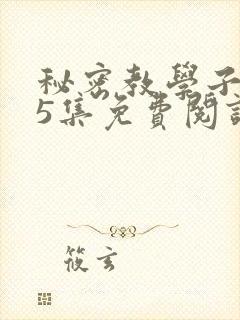 秘密教學子
5集免費閱讀
筱玄